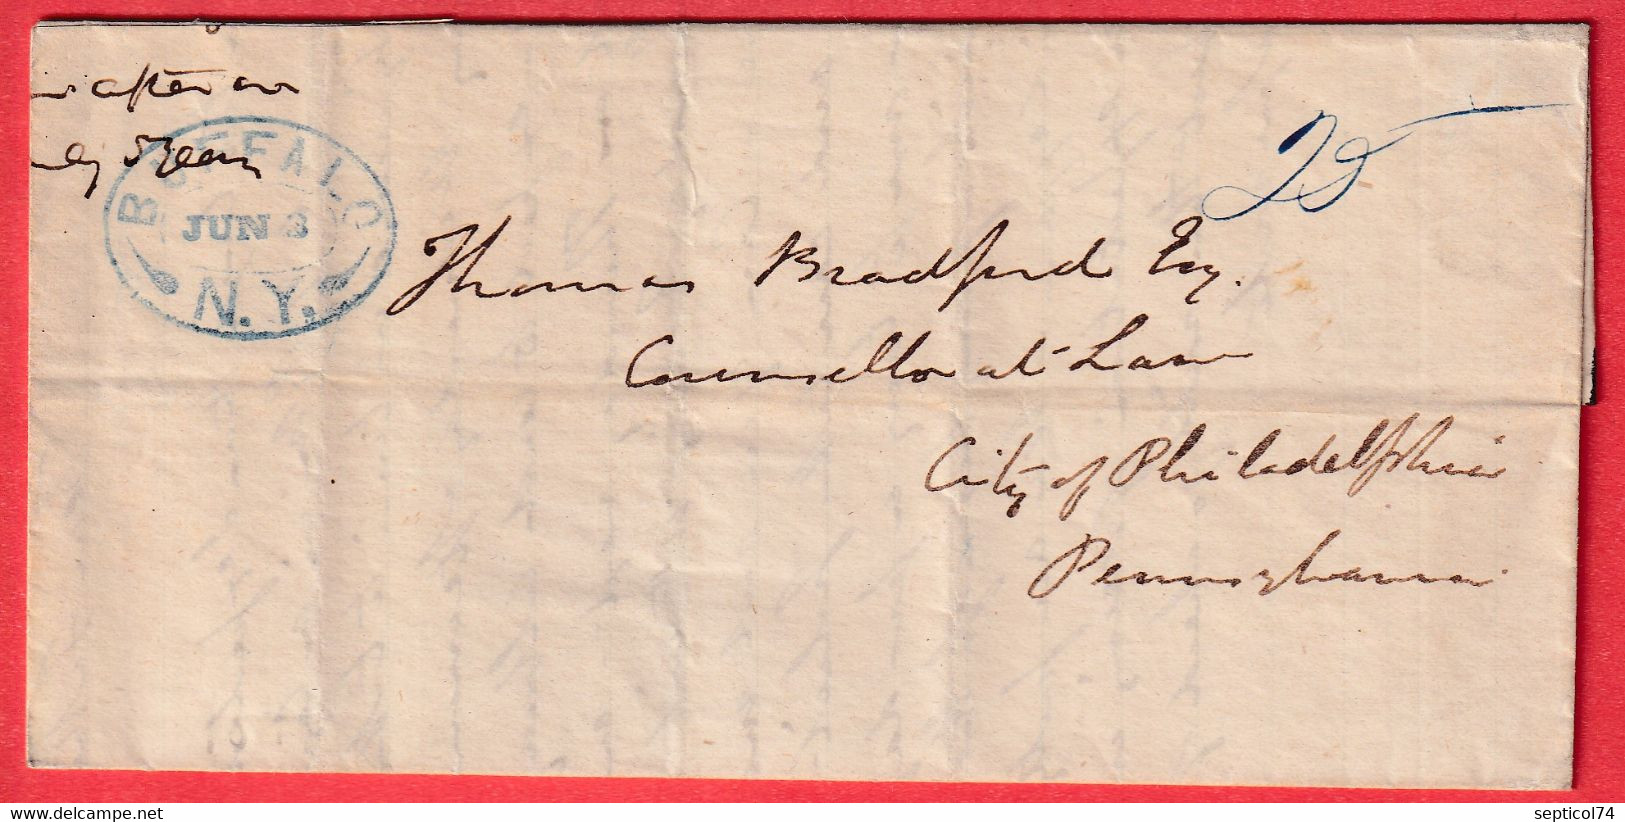 after
BUFFALO
JUN 3
N.Y.
25
Thomas Bradford Esq.
Counsellor at Law
City of Philadelphia
Pennsylvania
delcampe.net
septicol74